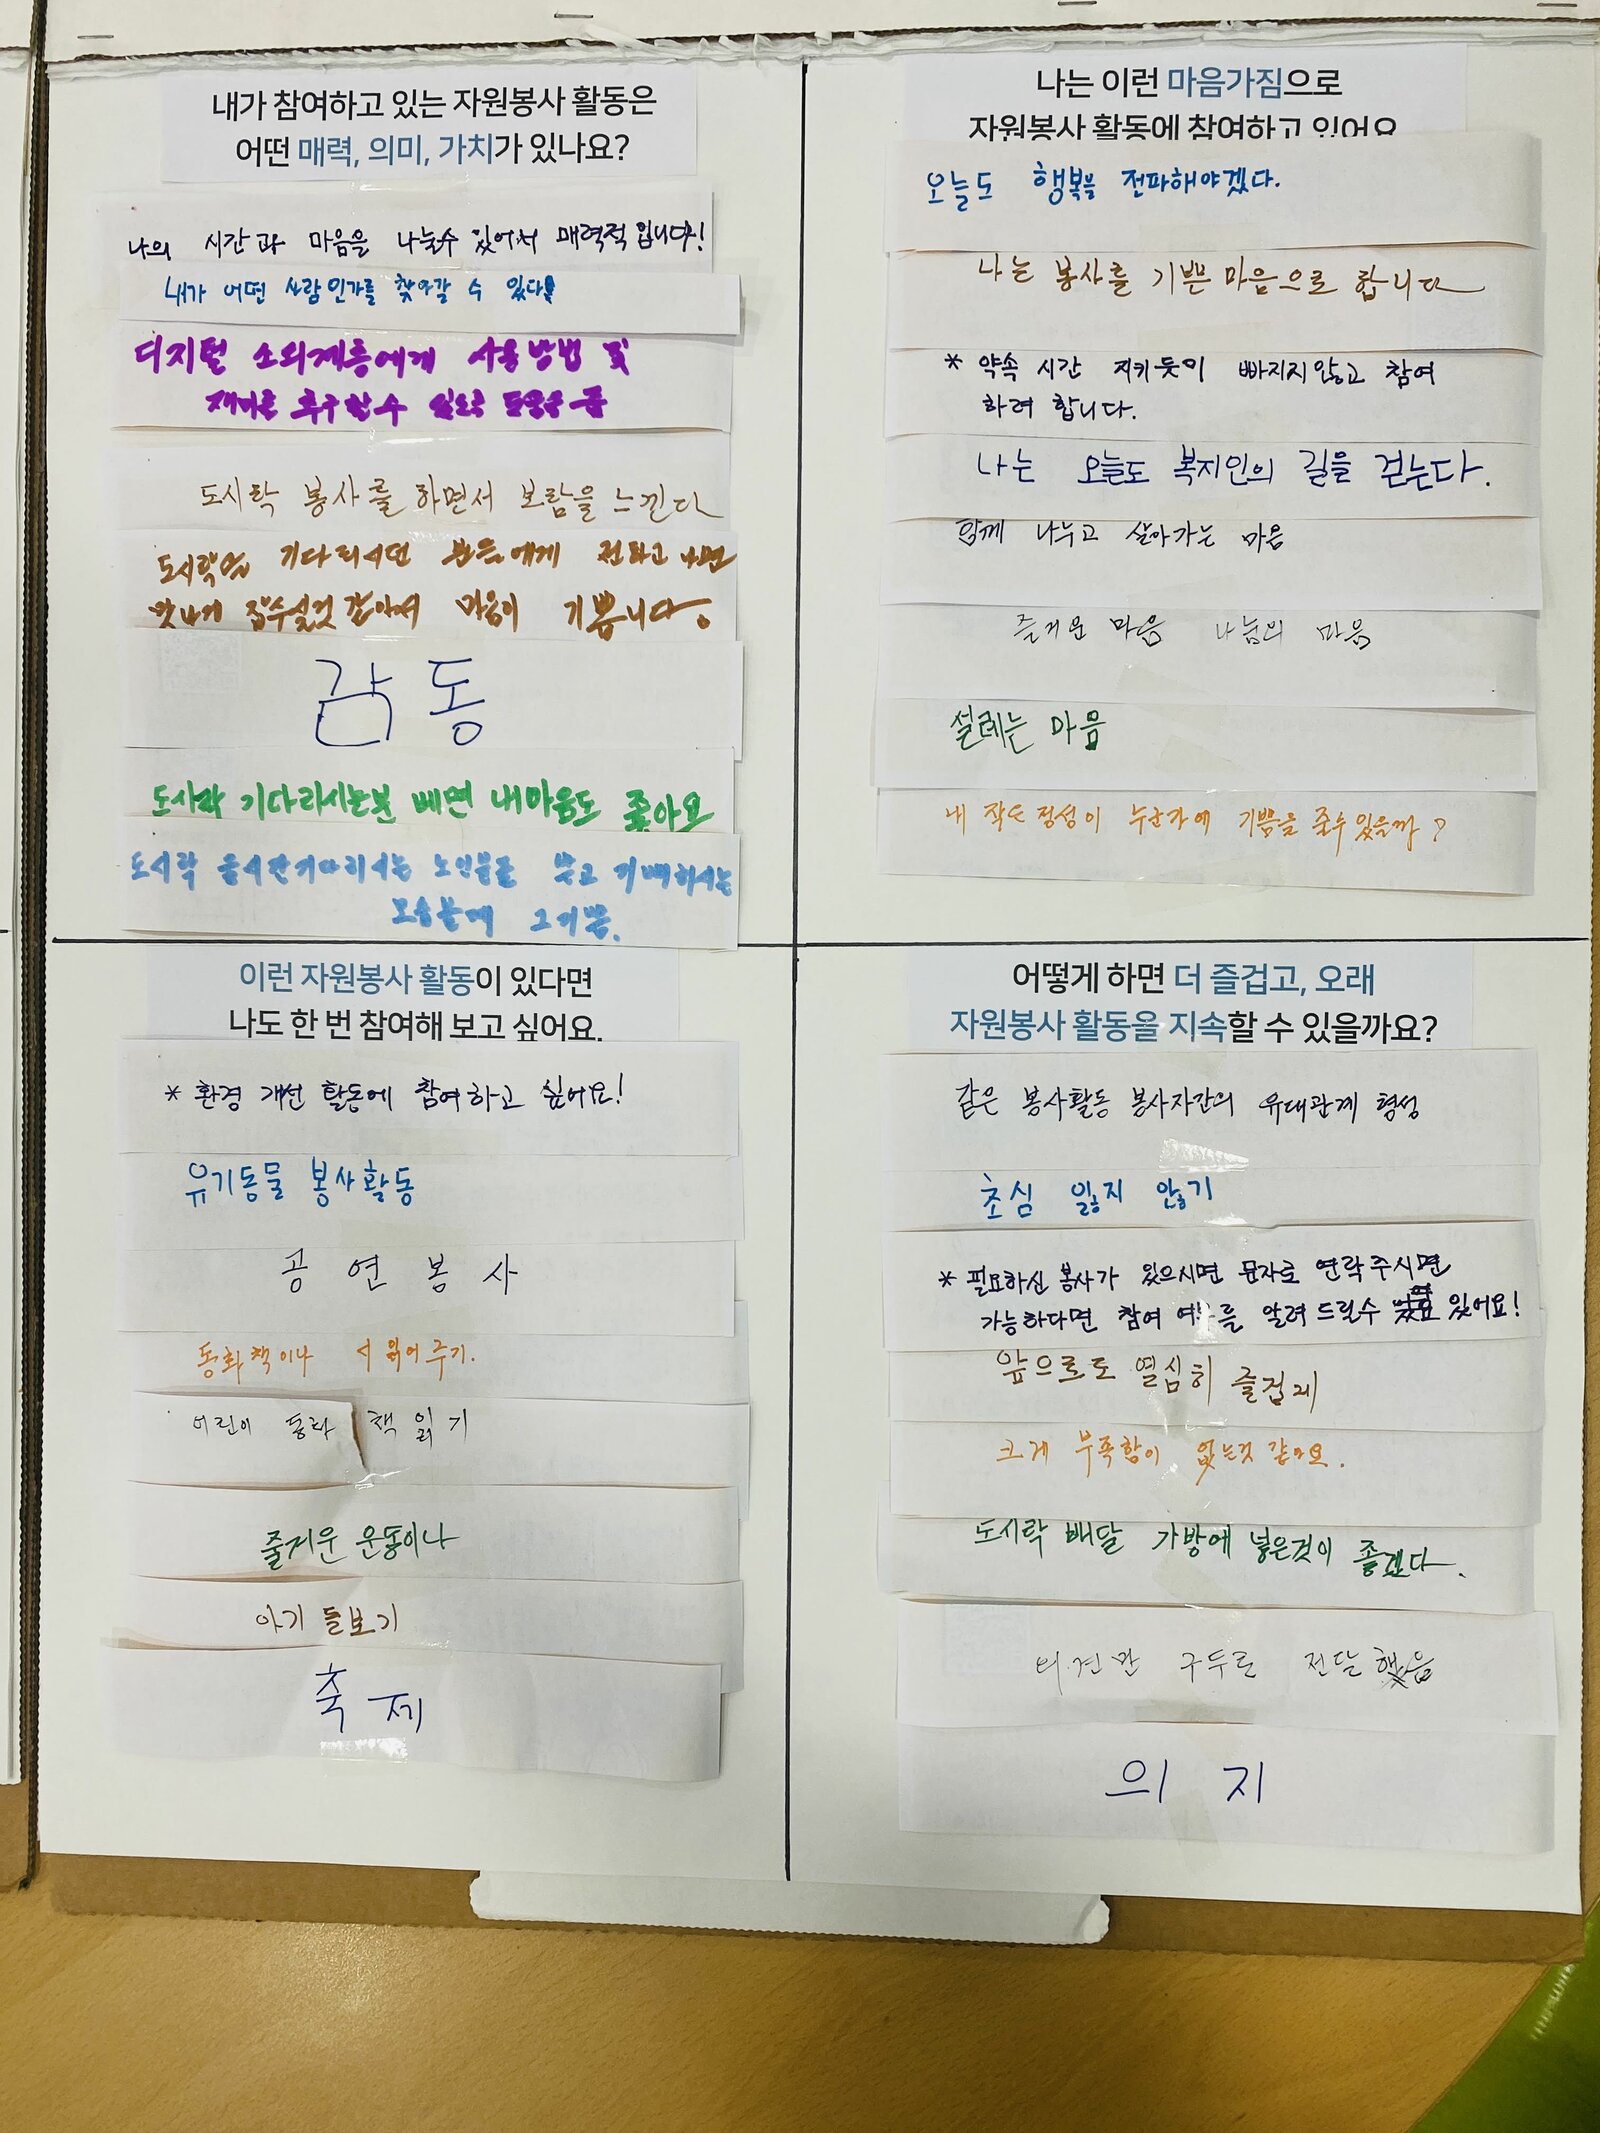 내가 참여하고 있는 자원봉사 활동은
어떤 매력, 의미, 가치가 있나요?
나의 시간과 마음을 나눌수 있어서 매력적입니다!
내가 어떤 사람인가를 찾아갈 수 있다
디지털 소외계층에게 사용방법 및
재미를 추구할수 있도록 도움을 줌
도시락 봉사를 하면서 보람을 느낀다
도시락을 기다리시던 분들에게 전하고 나면
맛나게 잡수실것 같아서 마음이 기쁩니다.
감동
도시락 기다리시는분 뵈면 내마음도 좋아요
도시락 기다리시는 노인분들 보고 기뻐하시는
모습들에 그 기쁨.
나는 이런 마음가짐으로
자원봉사 활동에 참여하고 있어요
오늘도 행복을 전파해야겠다.
나는 봉사를 기쁜마음으로 합니다
* 약속 시간 지키듯이 빠지지않고 참여
하려 합니다.
나는 오늘도 복지인의 길을 걷는다.
함께 나누고 살아가는 마음
즐거운 마음 나눔의 마음
설레는 마음
내 작은 정성이 누군가에 기쁨을 줄수있을까?
이런 자원봉사 활동이 있다면
나도 한 번 참여해 보고 싶어요.
* 환경 개선 활동에 참여하고 싶어요!
유기동물 봉사활동
공연봉사
동화책이나 읽어주기.
어린이 동화 책 읽기
즐거운 운동이나
아기 돌보기
축제
어떻게 하면 더 즐겁고, 오래
자원봉사 활동을 지속할 수 있을까요?
같은 봉사활동 봉사자간의 유대관계 형성
초심 잃지 않기
* 필요하신 봉사가 있으시면 문자로 연락주시면
가능하다면 참여 여부를 알려 드릴수 있어요!
앞으로도 열심히 즐겁게
크게 부족함이 없는것 같아요.
도시락 배달 가방에 넣은것이 좋겠다.
의견만 구두로 전달했음
의지